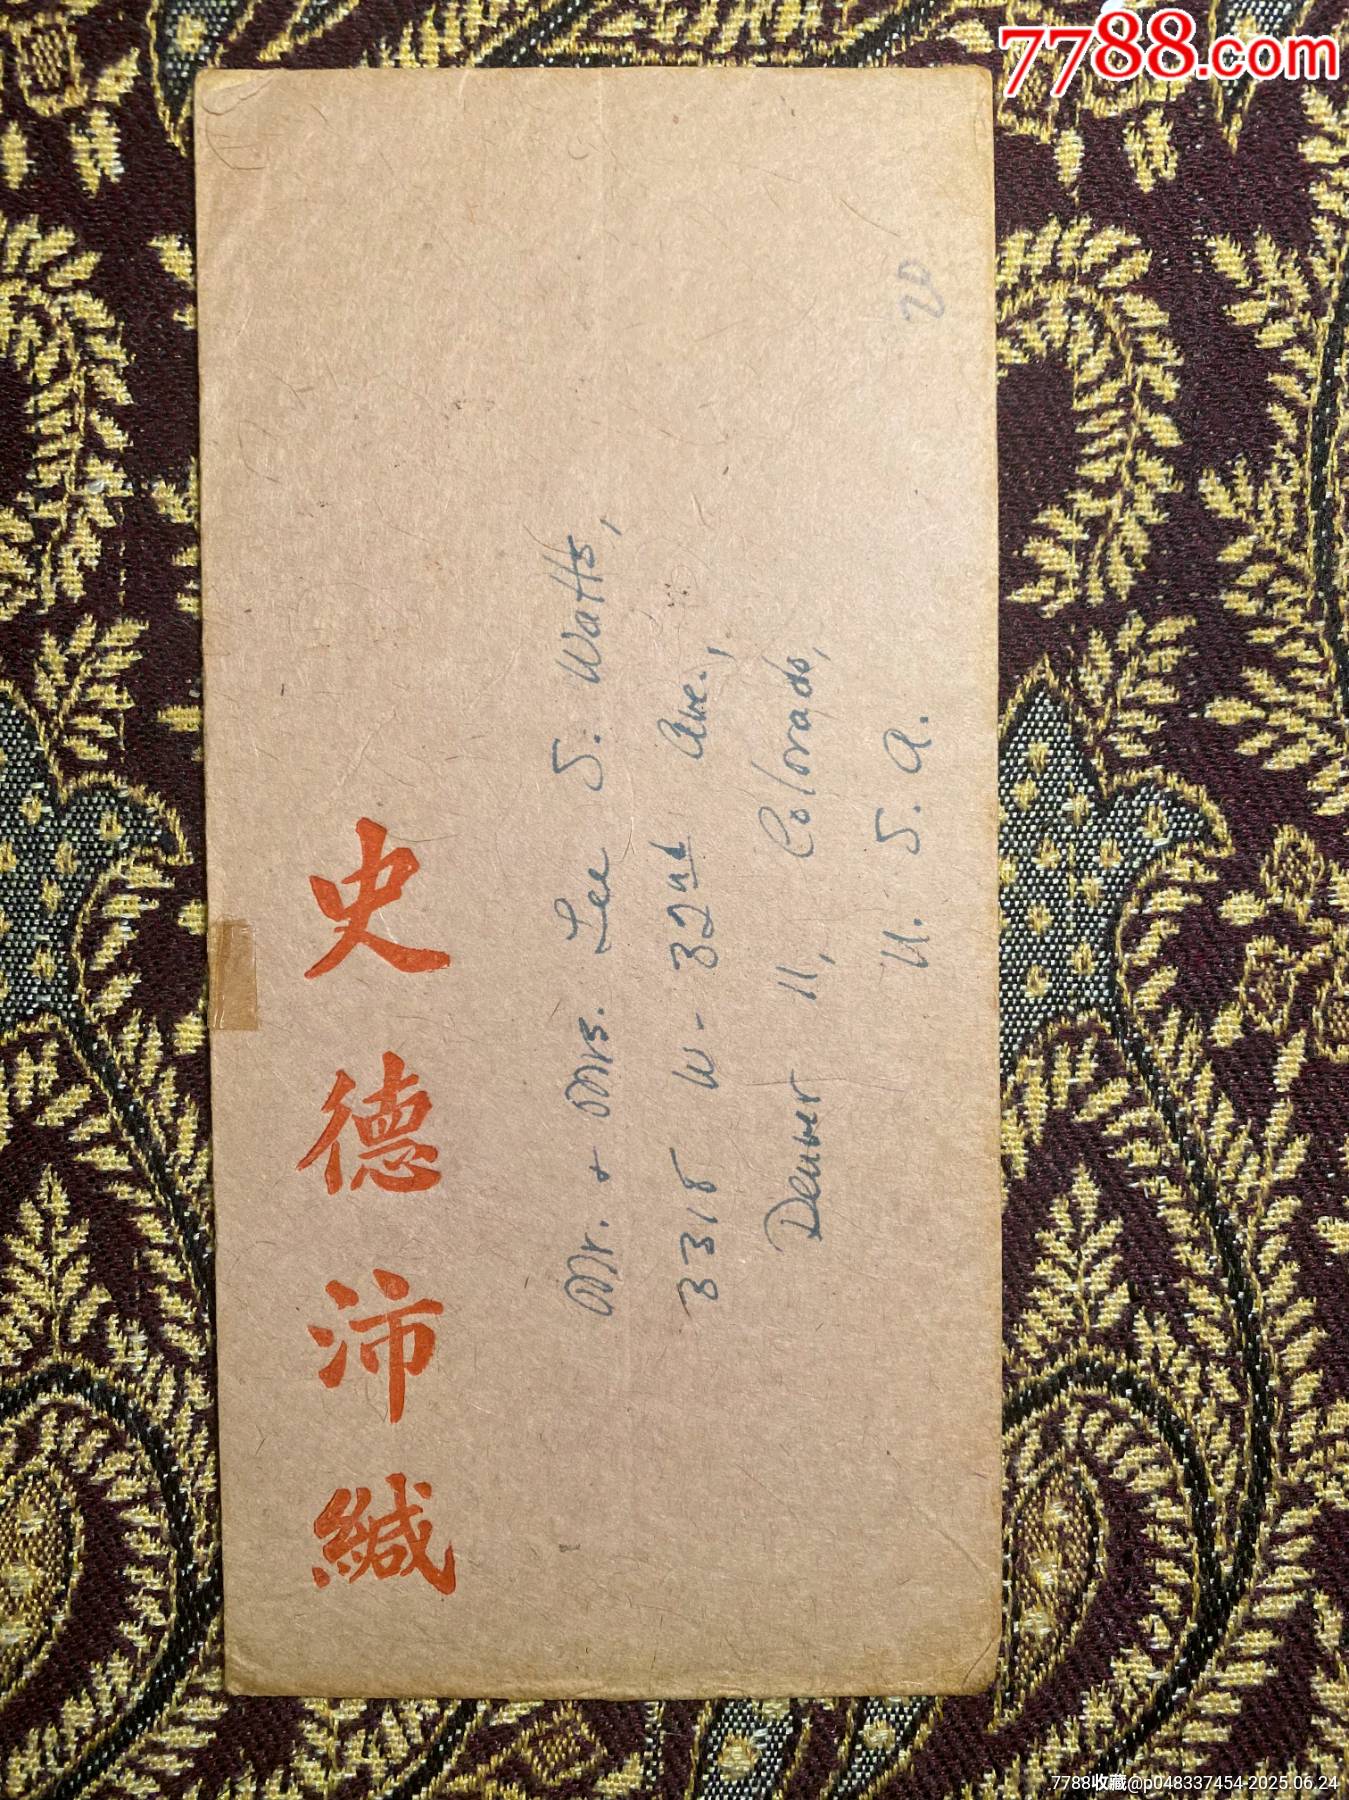 7788.com
史德沛緘
Mr. + Mrs. Lee S. Watts,
3318 W- 32nd Ave.,
Denver 11, Colorado,
U. S. A.
20
7788收藏@p048337454-2025.06.24